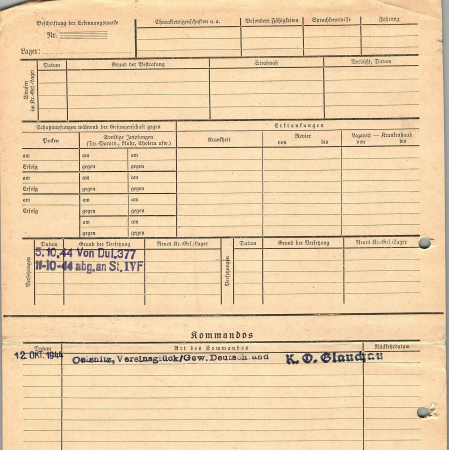 Beschriftung der Erkennungsmarke
Nr.
Lager:
Charaktereigenschaften u. a.
Besondere Fähigkeiten
Sprachkenntnisse
Führung
Strafen im Kr.-Gef.-Lager
Datum
Grund der Bestrafung
Strafmaß
Verbüßt, Datum
Schutzimpfungen während der Gefangenschaft gegen
Erkrankungen
Pocken
Sonstige Impfungen
(Ty.-Paraty., Ruhr, Cholera usw.)
Krankheit
Revier
von bis
Lazarett — Krankenhaus
von bis
am am am
Erfolg gegen gegen
am am am
Erfolg gegen gegen
am am am
Erfolg gegen gegen
am am
gegen gegen
Versetzungen
Datum Grund der Versetzung Neues Kr.-Gef.-Lager
5.10.44 Von Dul.377
11-10-44 abg.an St.IVF
Versetzungen
Datum Grund der Versetzung Neues Kr.-Gef.-Lager
Kommandos
Datum Art des Kommandos Rückkehrdatum
12. OKT. 1944 Oelsnitz, Vereinsglück/Gew. Deutschland K. O. Glauchau